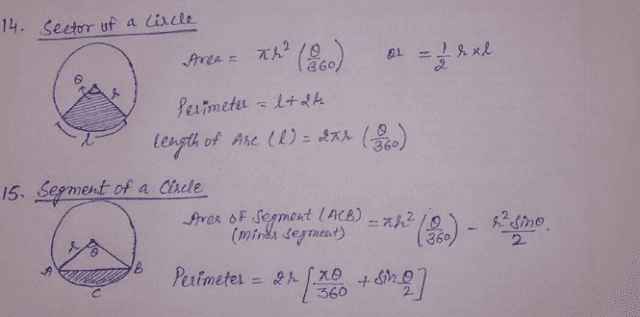 14. Sector of a Circle
Area = πr² (θ/360) or = 1/2 r×l
θ
r
Perimeter = l+2r
l
length of Arc (l) = 2πr (θ/360)
15. Segment of a Circle
Area of Segment (ACB) = πr² (θ/360) - r² Sinθ/2.
(minor segment)
r
θ
A B
C
Perimeter = 2r [πθ/360 + Sin θ/2]